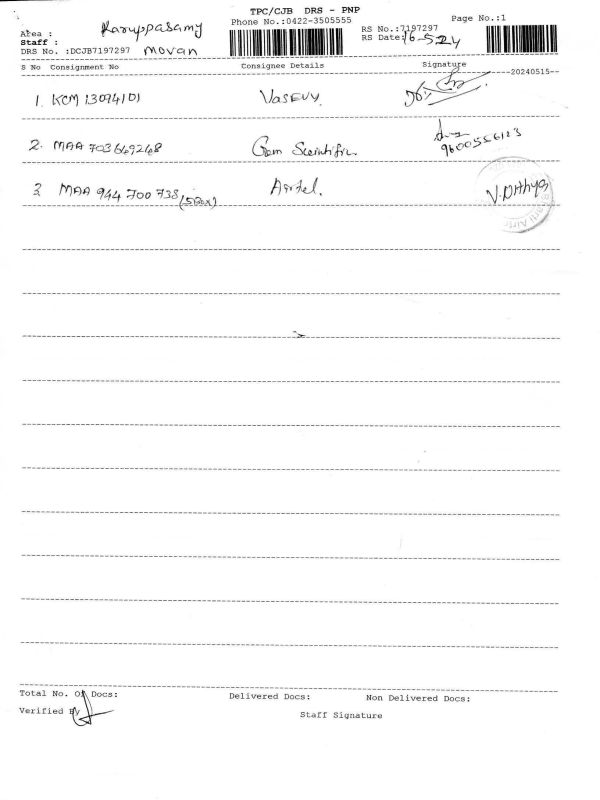 TPC/CJB DRS - PNP
Phone No.:0422-3505555
Page No.:1
Area : Karuppasamy
RS No.:7197297
Staff :
RS Date: 16-5-24
DRS No. :DCJB7197297 Movan
S No Consignment No Consignee Details Signature
--20240515--
1. KCM 13094101 Vasevy.
2. MAA 703669268 Gem Scientific
9600556123
3 MAA 944 700 738 (5Box) Airtel. V.Dithya
Total No. Of Docs: Delivered Docs: Non Delivered Docs:
Verified By
Staff Signature